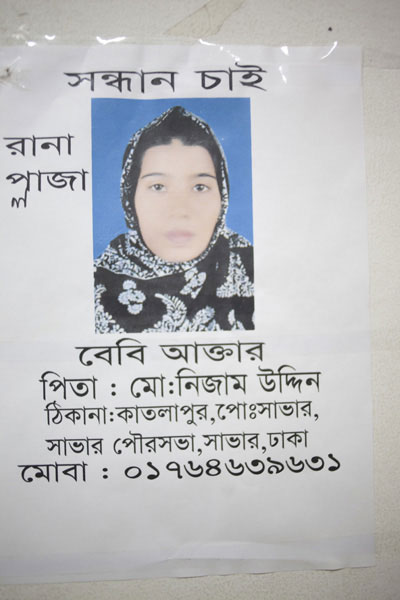 সন্ধান চাই
রানা
প্লাজা
বেবি আক্তার
পিতা : মো:নিজাম উদ্দিন
ঠিকানা:কাতলাপুর,পোঃসাভার,
সাভার পৌরসভা,সাভার,ঢাকা
মোবা : ০১৭৬৪৬৩৯৬৩১